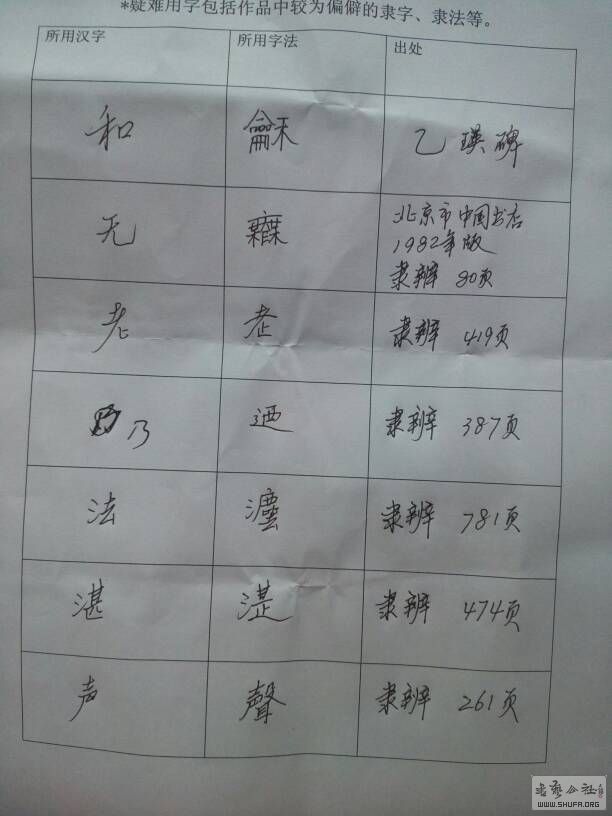 *疑难用字包括作品中较为偏僻的隶字、隶法等。
所用汉字 所用字法 出处
和 龢 乙瑛碑
无 橆 北京市中国书店
1982年版
隶辨 80页
老 老 隶辨 419页
乃 迺 隶辨 387页
法 灋 隶辨 781页
湛 湛 隶辨 474页
声 聲 隶辨 261页
WWW.SHUFA.ORG